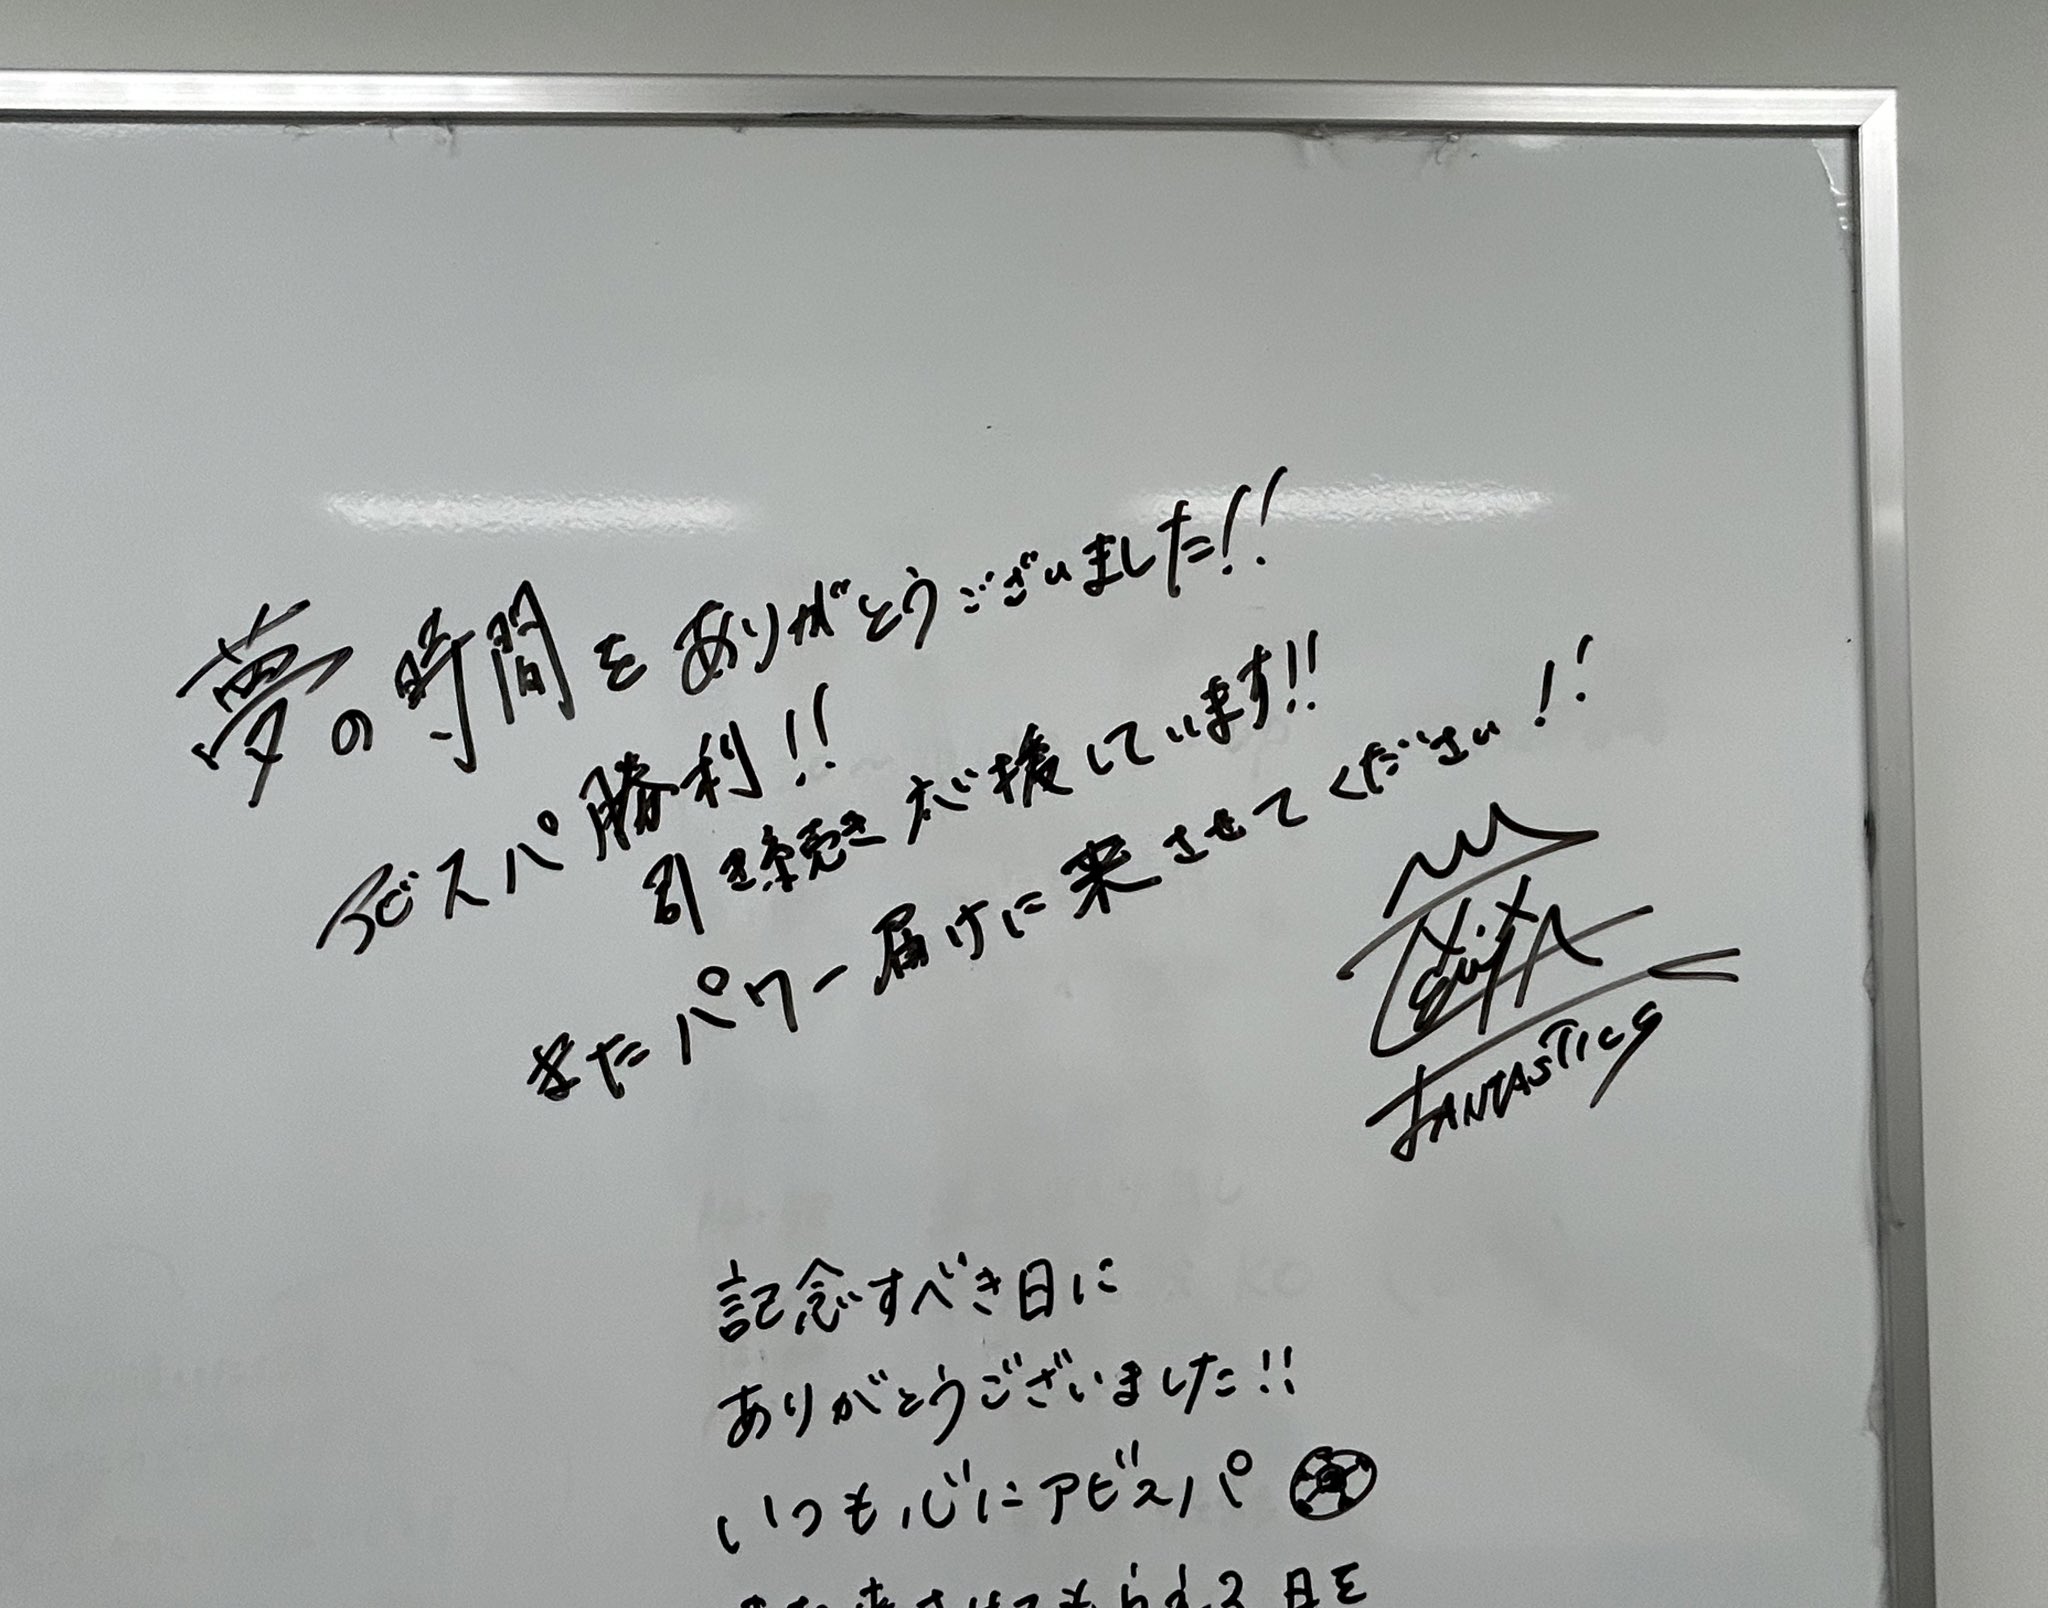 夢の時間をありがとうございました!!
アビスパ勝利!!
引き続き応援しています!!
またパワー届けに来させてください!!
FANTASTICS
記念すべき日に
ありがとうございました!!
いつも心にアビスパ
また来させてもらえる日を